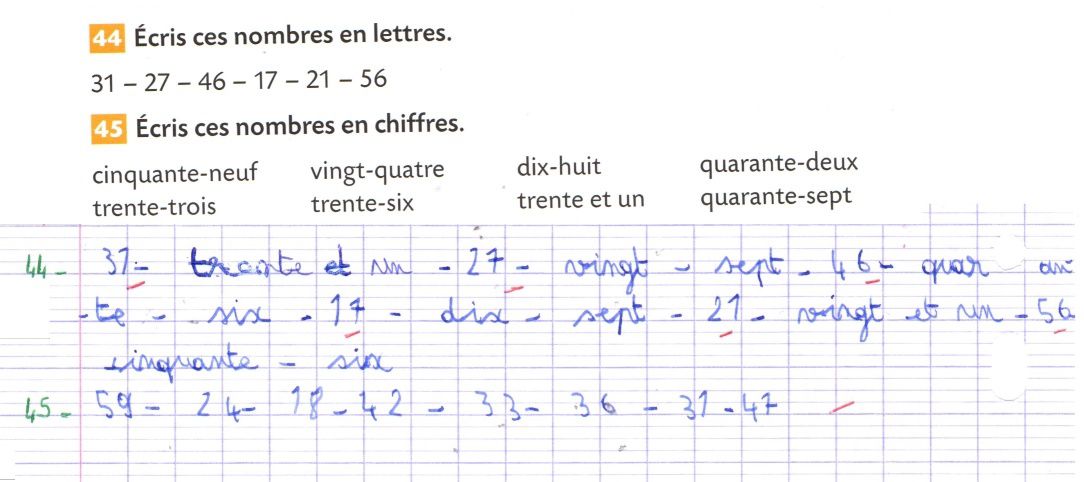 44 Écris ces nombres en lettres.
31 – 27 – 46 – 17 – 21 – 56
45 Écris ces nombres en chiffres.
cinquante-neuf vingt-quatre dix-huit quarante-deux
trente-trois trente-six trente et un quarante-sept
44- 31- trente et un - 27 - vingt - sept - 46 - quar an
-te - six - 17 - dix - sept - 21 - vingt et un - 56
cinquante - six
45- 59 - 24 - 18 - 42 - 33 - 36 - 31 - 47